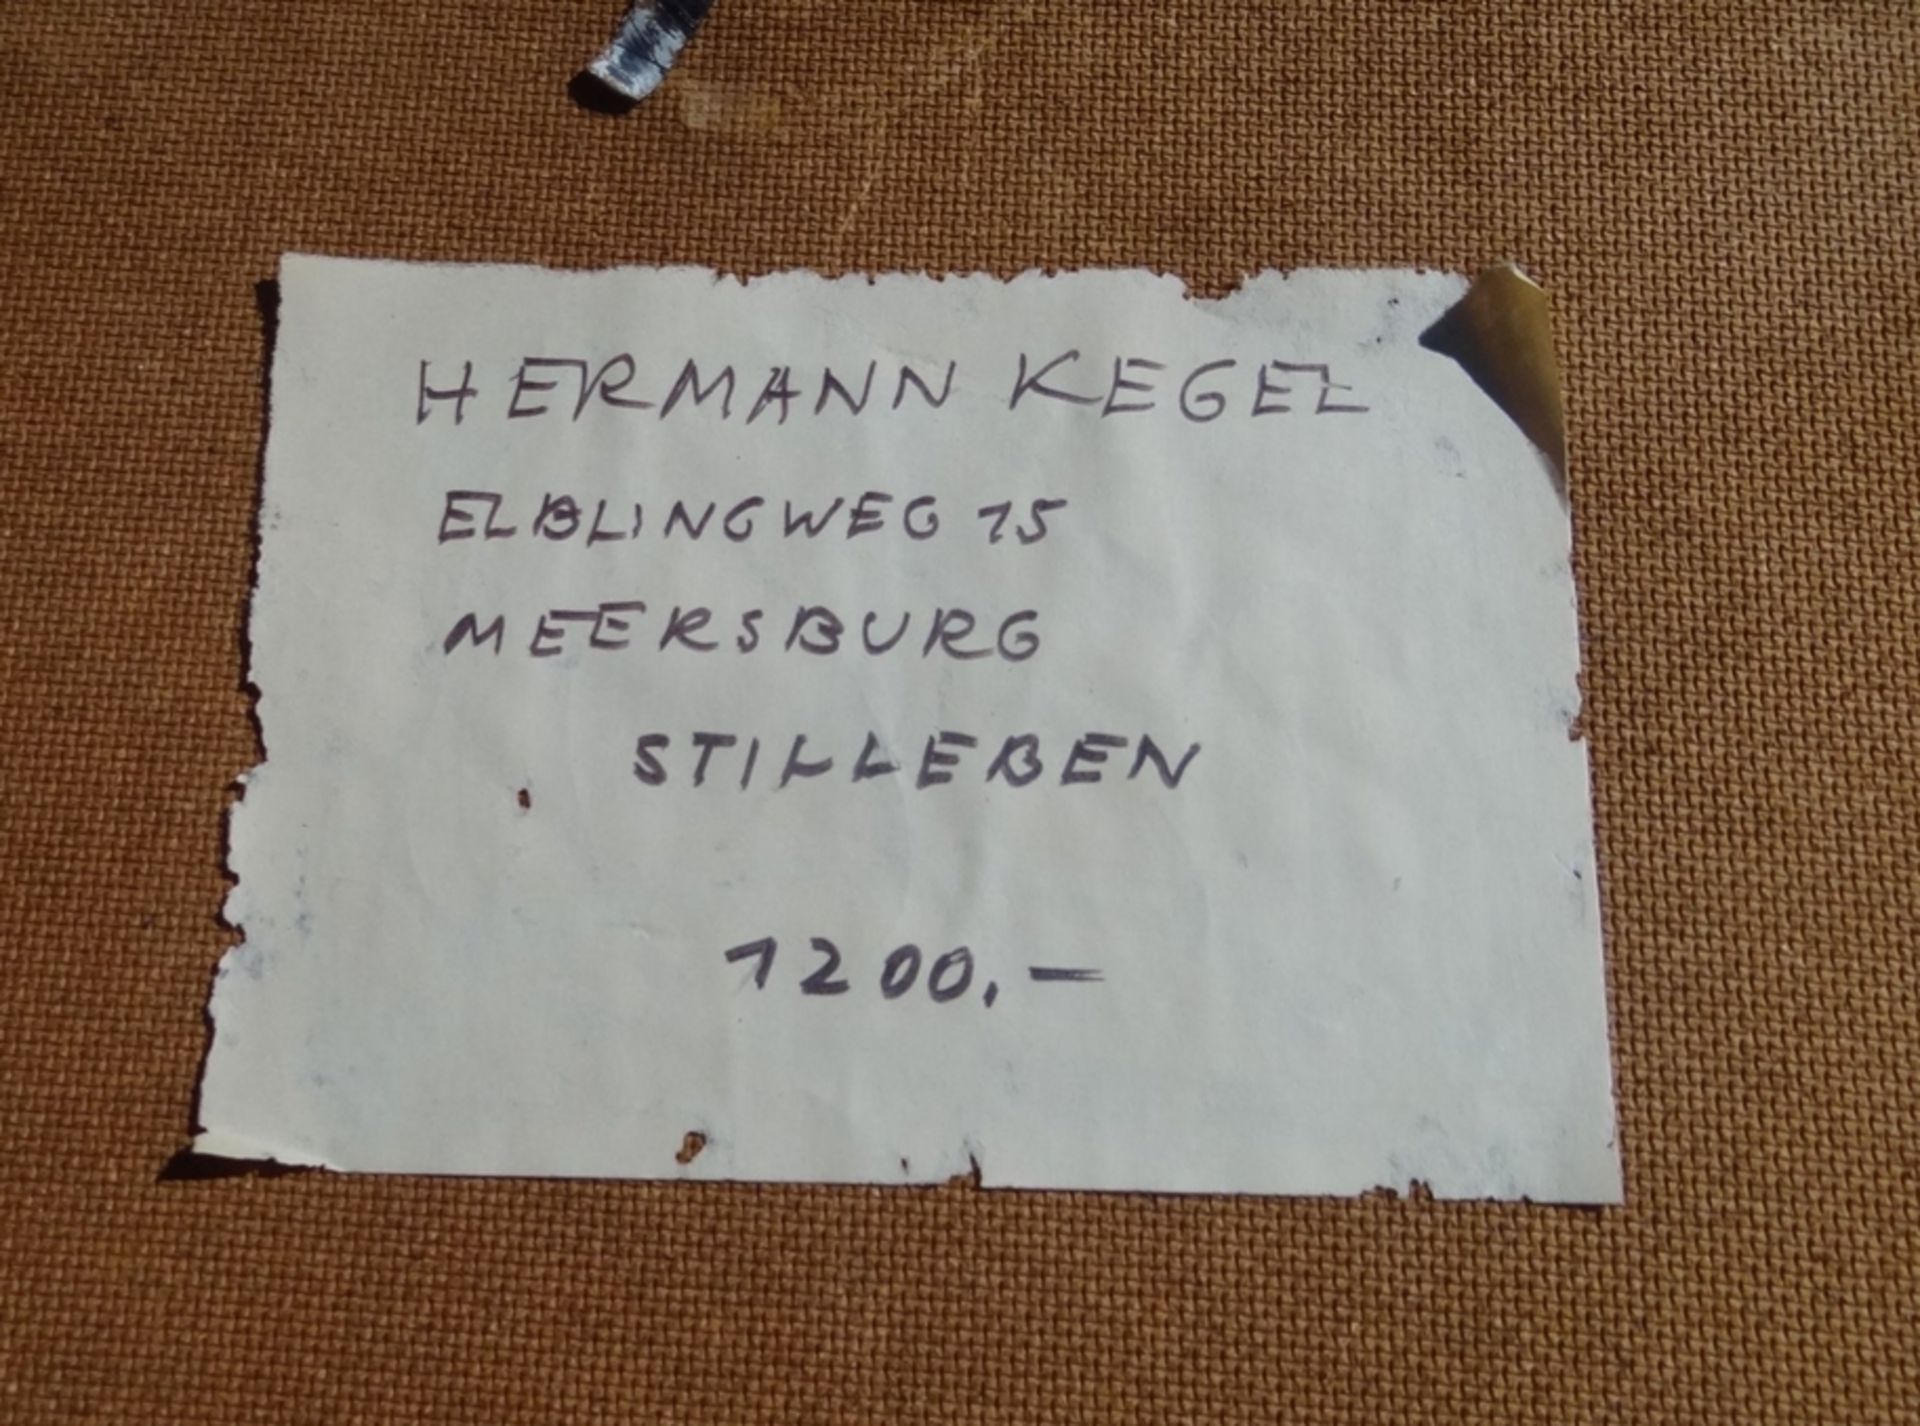 HERMANN KEGEL
ELBLINGWEG 15
MEERSBURG
STILLEBEN
1200,-